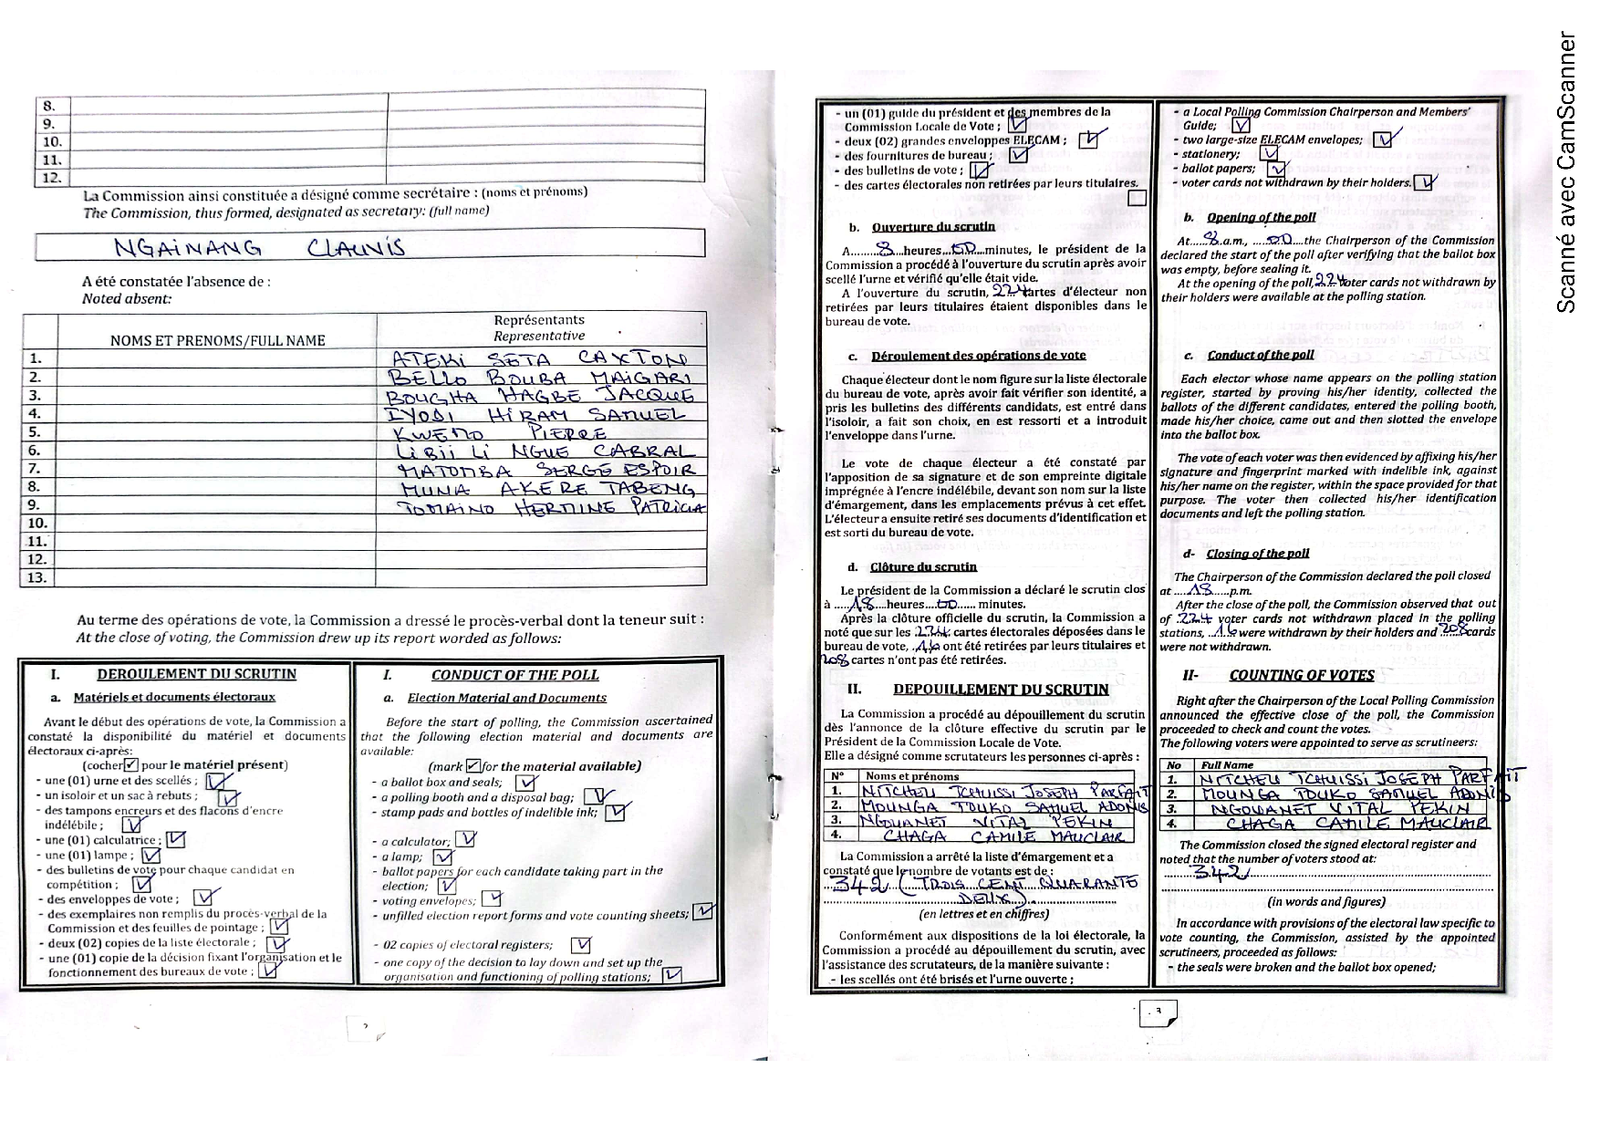 8.
9.
10.
11.
12.
La Commission ainsi constituée a désigné comme secrétaire : (noms et prénoms)
The Commission, thus formed, designated as secretary: (full name)
NGAINANG CLAUNIS
A été constatée l'absence de :
Noted absent:
NOMS ET PRENOMS/FULL NAME
Représentants
Representative
1. ATEKI SETA CAXTON
2. BELLO BOUBA MAIGARI
3. BOUGHA HAGBE JACQUE
4. IYODI HIRAM SAMUEL
5. KWEMO PIERRE
6. LIBII LI NGUE CABRAL
7. MATOMBA SERGE ESPOIR
8. MUNA AKERE TABENG
9. TOMAINO HERMINE PATRICIA
10.
11.
12.
13.
Au terme des opérations de vote, la Commission a dressé le procès-verbal dont la teneur suit :
At the close of voting, the Commission drew up its report worded as follows:
I. DEROULEMENT DU SCRUTIN
a. Matériels et documents électoraux
Avant le début des opérations de vote, la Commission a
constaté la disponibilité du matériel et documents
électoraux ci-après:
(cocher ✓ pour le matériel présent)
- une (01) urne et des scellés ;
- un isoloir et un sac à rebuts ;
- des tampons encreurs et des flacons d'encre
indélébile ;
- une (01) calculatrice ;
- une (01) lampe ;
- des bulletins de vote pour chaque candidat en
compétition ;
- des enveloppes de vote ;
- des exemplaires non remplis du procès-verbal de la
Commission et des feuilles de pointage ;
- deux (02) copies de la liste électorale ;
- une (01) copie de la décision fixant l'organisation et le
fonctionnement des bureaux de vote ;
I. CONDUCT OF THE POLL
a. Election Material and Documents
Before the start of polling, the Commission ascertained
that the following election material and documents are
available:
(mark ✓ for the material available)
- a ballot box and seals;
- a polling booth and a disposal bag;
- stamp pads and bottles of indelible ink;
- a calculator;
- a lamp;
- ballot papers for each candidate taking part in the
election;
- voting envelopes;
- unfilled election report forms and vote counting sheets;
- 02 copies of electoral registers;
- one copy of the decision to lay down and set up the
organisation and functioning of polling stations;
2
- un (01) guide du président et des membres de la
Commission Locale de Vote ;
- deux (02) grandes enveloppes ELECAM ;
- des fournitures de bureau ;
- des bulletins de vote ;
- des cartes électorales non retirées par leurs titulaires.
b. Ouverture du scrutin
A.........8....heures....00....minutes, le président de la
Commission a procédé à l'ouverture du scrutin après avoir
scellé l'urne et vérifié qu'elle était vide.
A l'ouverture du scrutin, 224 cartes d'électeur non
retirées par leurs titulaires étaient disponibles dans le
bureau de vote.
c. Déroulement des opérations de vote
Chaque électeur dont le nom figure sur la liste électorale
du bureau de vote, après avoir fait vérifier son identité, a
pris les bulletins des différents candidats, est entré dans
l'isoloir, a fait son choix, en est ressorti et a introduit
l'enveloppe dans l'urne.
Le vote de chaque électeur a été constaté par
l'apposition de sa signature et de son empreinte digitale
imprégnée à l'encre indélébile, devant son nom sur la liste
d'émargement, dans les emplacements prévus à cet effet.
L'électeur a ensuite retiré ses documents d'identification et
est sorti du bureau de vote.
d. Clôture du scrutin
Le président de la Commission a déclaré le scrutin clos
à ....18....heures....00...... minutes.
Après la clôture officielle du scrutin, la Commission a
noté que sur les 224 cartes électorales déposées dans le
bureau de vote, ..16 ont été retirées par leurs titulaires et
208 cartes n'ont pas été retirées.
II. DEPOUILLEMENT DU SCRUTIN
La Commission a procédé au dépouillement du scrutin
dès l'annonce de la clôture effective du scrutin par le
Président de la Commission Locale de Vote.
Elle a désigné comme scrutateurs les personnes ci-après :
N° Noms et prénoms
1. NITCHEU TCHUISSI JOSEPH PARFAIT
2. MOUNGA TOUKO SAMUEL ADONIS
3. NGOUANET VITAL PEKIN
4. CHAGA CAMILE MAUCLAIR
La Commission a arrêté la liste d'émargement et a
constaté que le nombre de votants est de :
342 (TROIS CENT QUARANTE
DEUX)
(en lettres et en chiffres)
Conformément aux dispositions de la loi électorale, la
Commission a procédé au dépouillement du scrutin, avec
l'assistance des scrutateurs, de la manière suivante :
- les scellés ont été brisés et l'urne ouverte ;
- a Local Polling Commission Chairperson and Members'
Guide;
- two large-size ELECAM envelopes;
- stationery;
- ballot papers;
- voter cards not withdrawn by their holders.
b. Opening of the poll
At....8.a.m., .....00....the Chairperson of the Commission
declared the start of the poll after verifying that the ballot box
was empty, before sealing it.
At the opening of the poll, 224 voter cards not withdrawn by
their holders were available at the polling station.
c. Conduct of the poll
Each elector whose name appears on the polling station
register, started by proving his/her identity, collected the
ballots of the different candidates, entered the polling booth,
made his/her choice, came out and then slotted the envelope
into the ballot box.
The vote of each voter was then evidenced by affixing his/her
signature and fingerprint marked with indelible ink, against
his/her name on the register, within the space provided for that
purpose. The voter then collected his/her identification
documents and left the polling station.
d- Closing of the poll
The Chairperson of the Commission declared the poll closed
at ....18.....p.m.
After the close of the poll, the Commission observed that out
of 224 voter cards not withdrawn placed in the polling
stations, ..16 were withdrawn by their holders and 208 cards
were not withdrawn.
II- COUNTING OF VOTES
Right after the Chairperson of the Local Polling Commission
announced the effective close of the poll, the Commission
proceeded to check and count the votes.
The following voters were appointed to serve as scrutineers:
No Full Name
1. NITCHEU TCHUISSI JOSEPH PARFAIT
2. MOUNGA TOUKO SAMUEL ADONIS
3. NGOUANET VITAL PEKIN
4. CHAGA CAMILE MAUCLAIR
The Commission closed the signed electoral register and
noted that the number of voters stood at:
342
(in words and figures)
In accordance with provisions of the electoral law specific to
vote counting, the Commission, assisted by the appointed
scrutineers, proceeded as follows:
- the seals were broken and the ballot box opened;
3
Scanné avec CamScanner